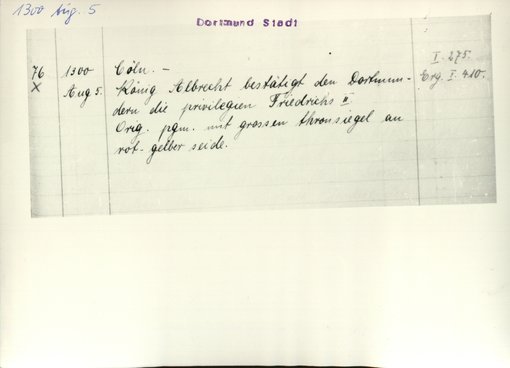 1300 Aug. 5
Dortmund Stadt
76 1300 Cöln. — I. 275.
X Aug 5. König Albrecht bestätigt den Dortmun- Erg. I. 410.
dern die privilegien Friedrichs II.
Orig. pgm. mit grossen thronsiegel an
rot-gelber seide.